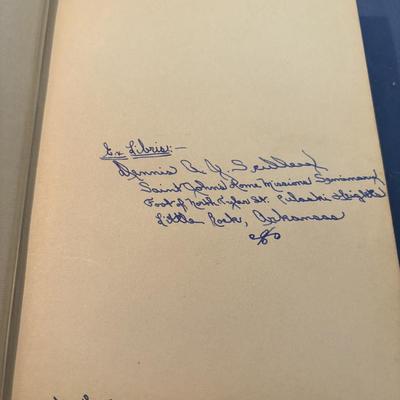 Ex Libris:-
Dennis A. J.
Saint John's Home Missions Seminary
Foot of North Tyler St. Pulaski Heights
Little Rock, Arkansas